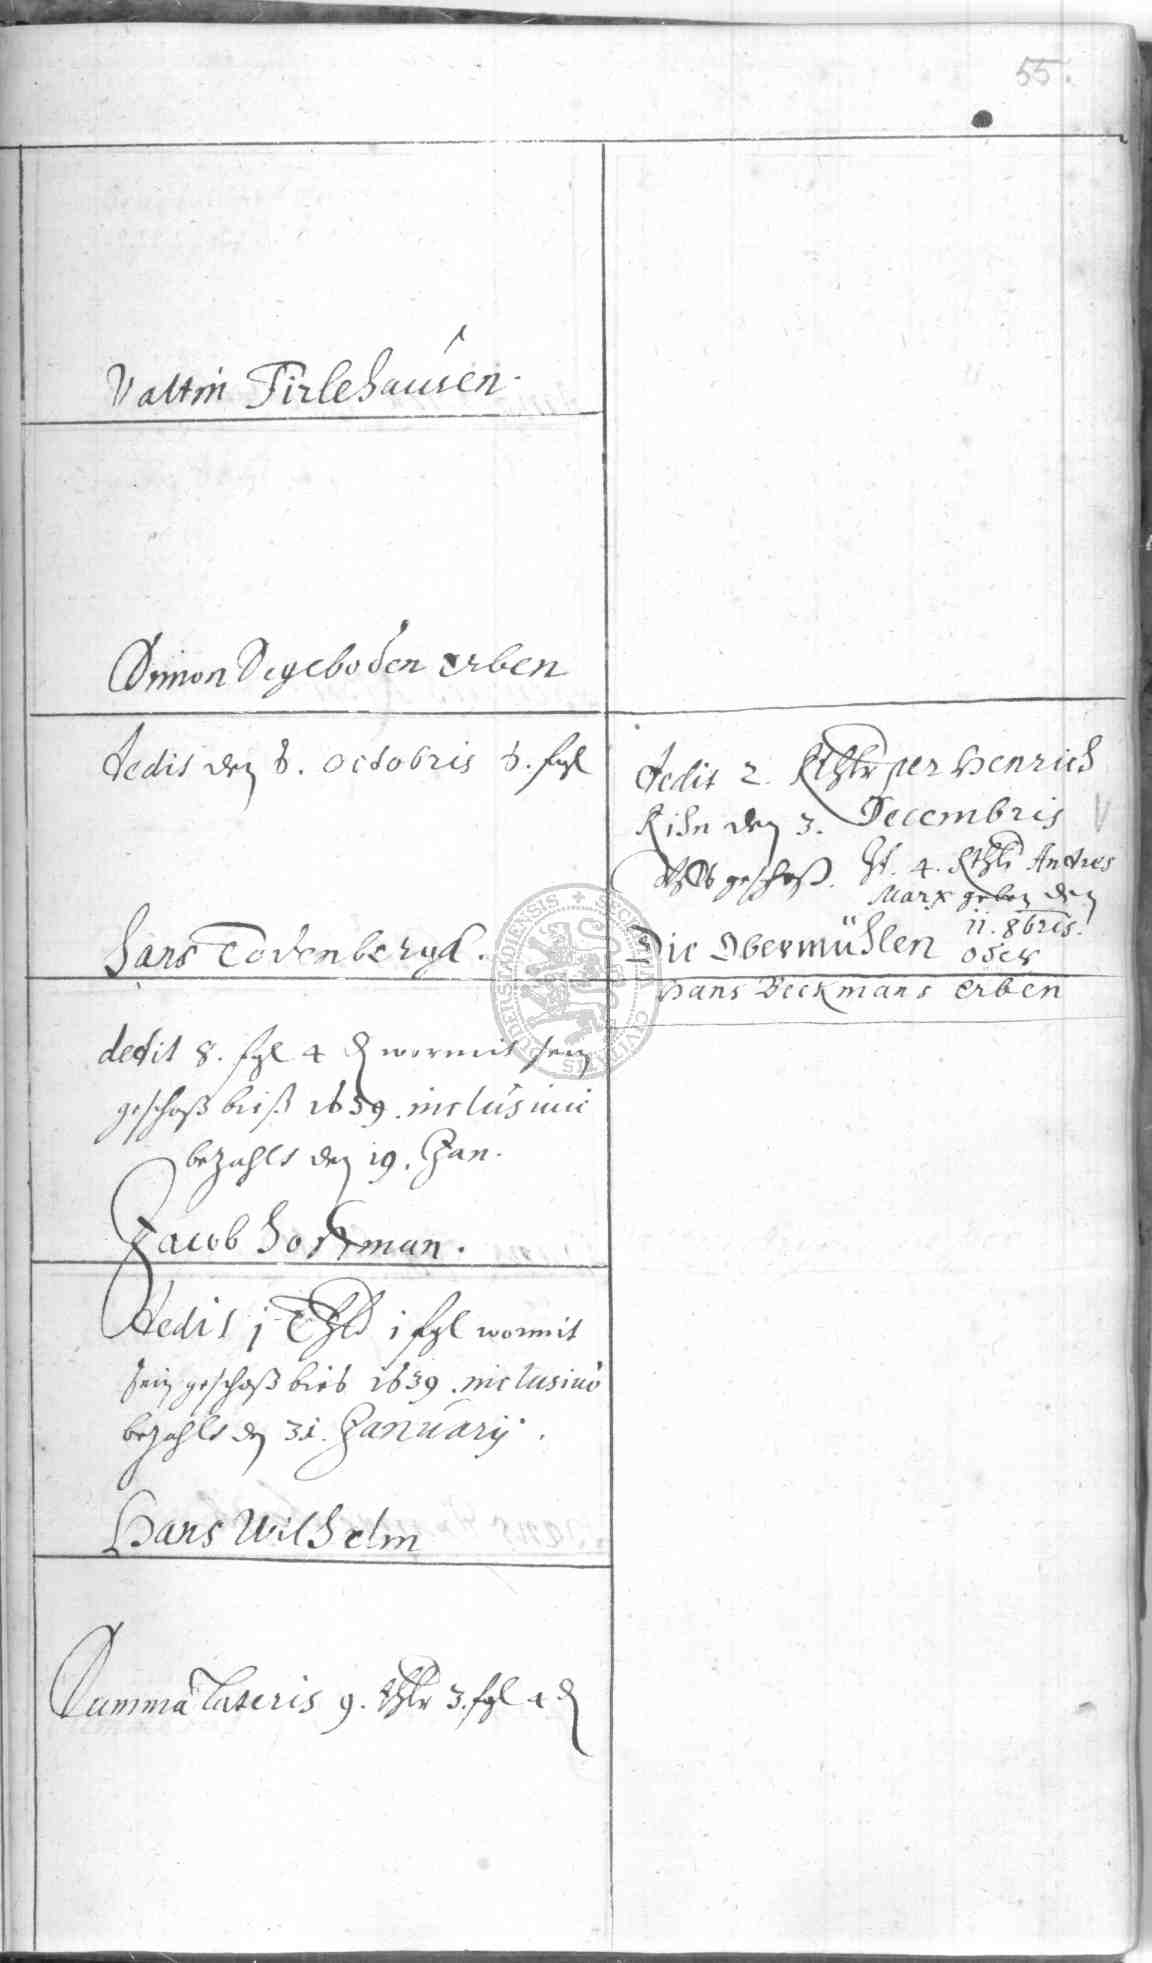 55.
Valtin Firlehausen.
Simon Degeboden erben
dedit den 8. octobris 8. fgl
Hans Todenbergk.
dedit 8. fgl 4 ₰ wormit sein
geschoß bieß 1639. inclusiue
bezahlt den 19. Jan.
Jacob Hottman.
dedit j Thlr j fgl wormit
sein geschoß bieß 1639. inclusiue
bezahlt den 31. Januarij.
Hans Wilhelm
Summa lateris 9. thlr 3. fgl 4 ₰
dedit 2. Rthlr per Henrich
Kihn den 3. Decembris
geschoß. 4. Rthlr Andres
Marx geben den
11. 8bris.
Die Obermühlen oder
Hans Beckmans Erben
SECRETA CIVITATIS DUDERSTADIENSIS